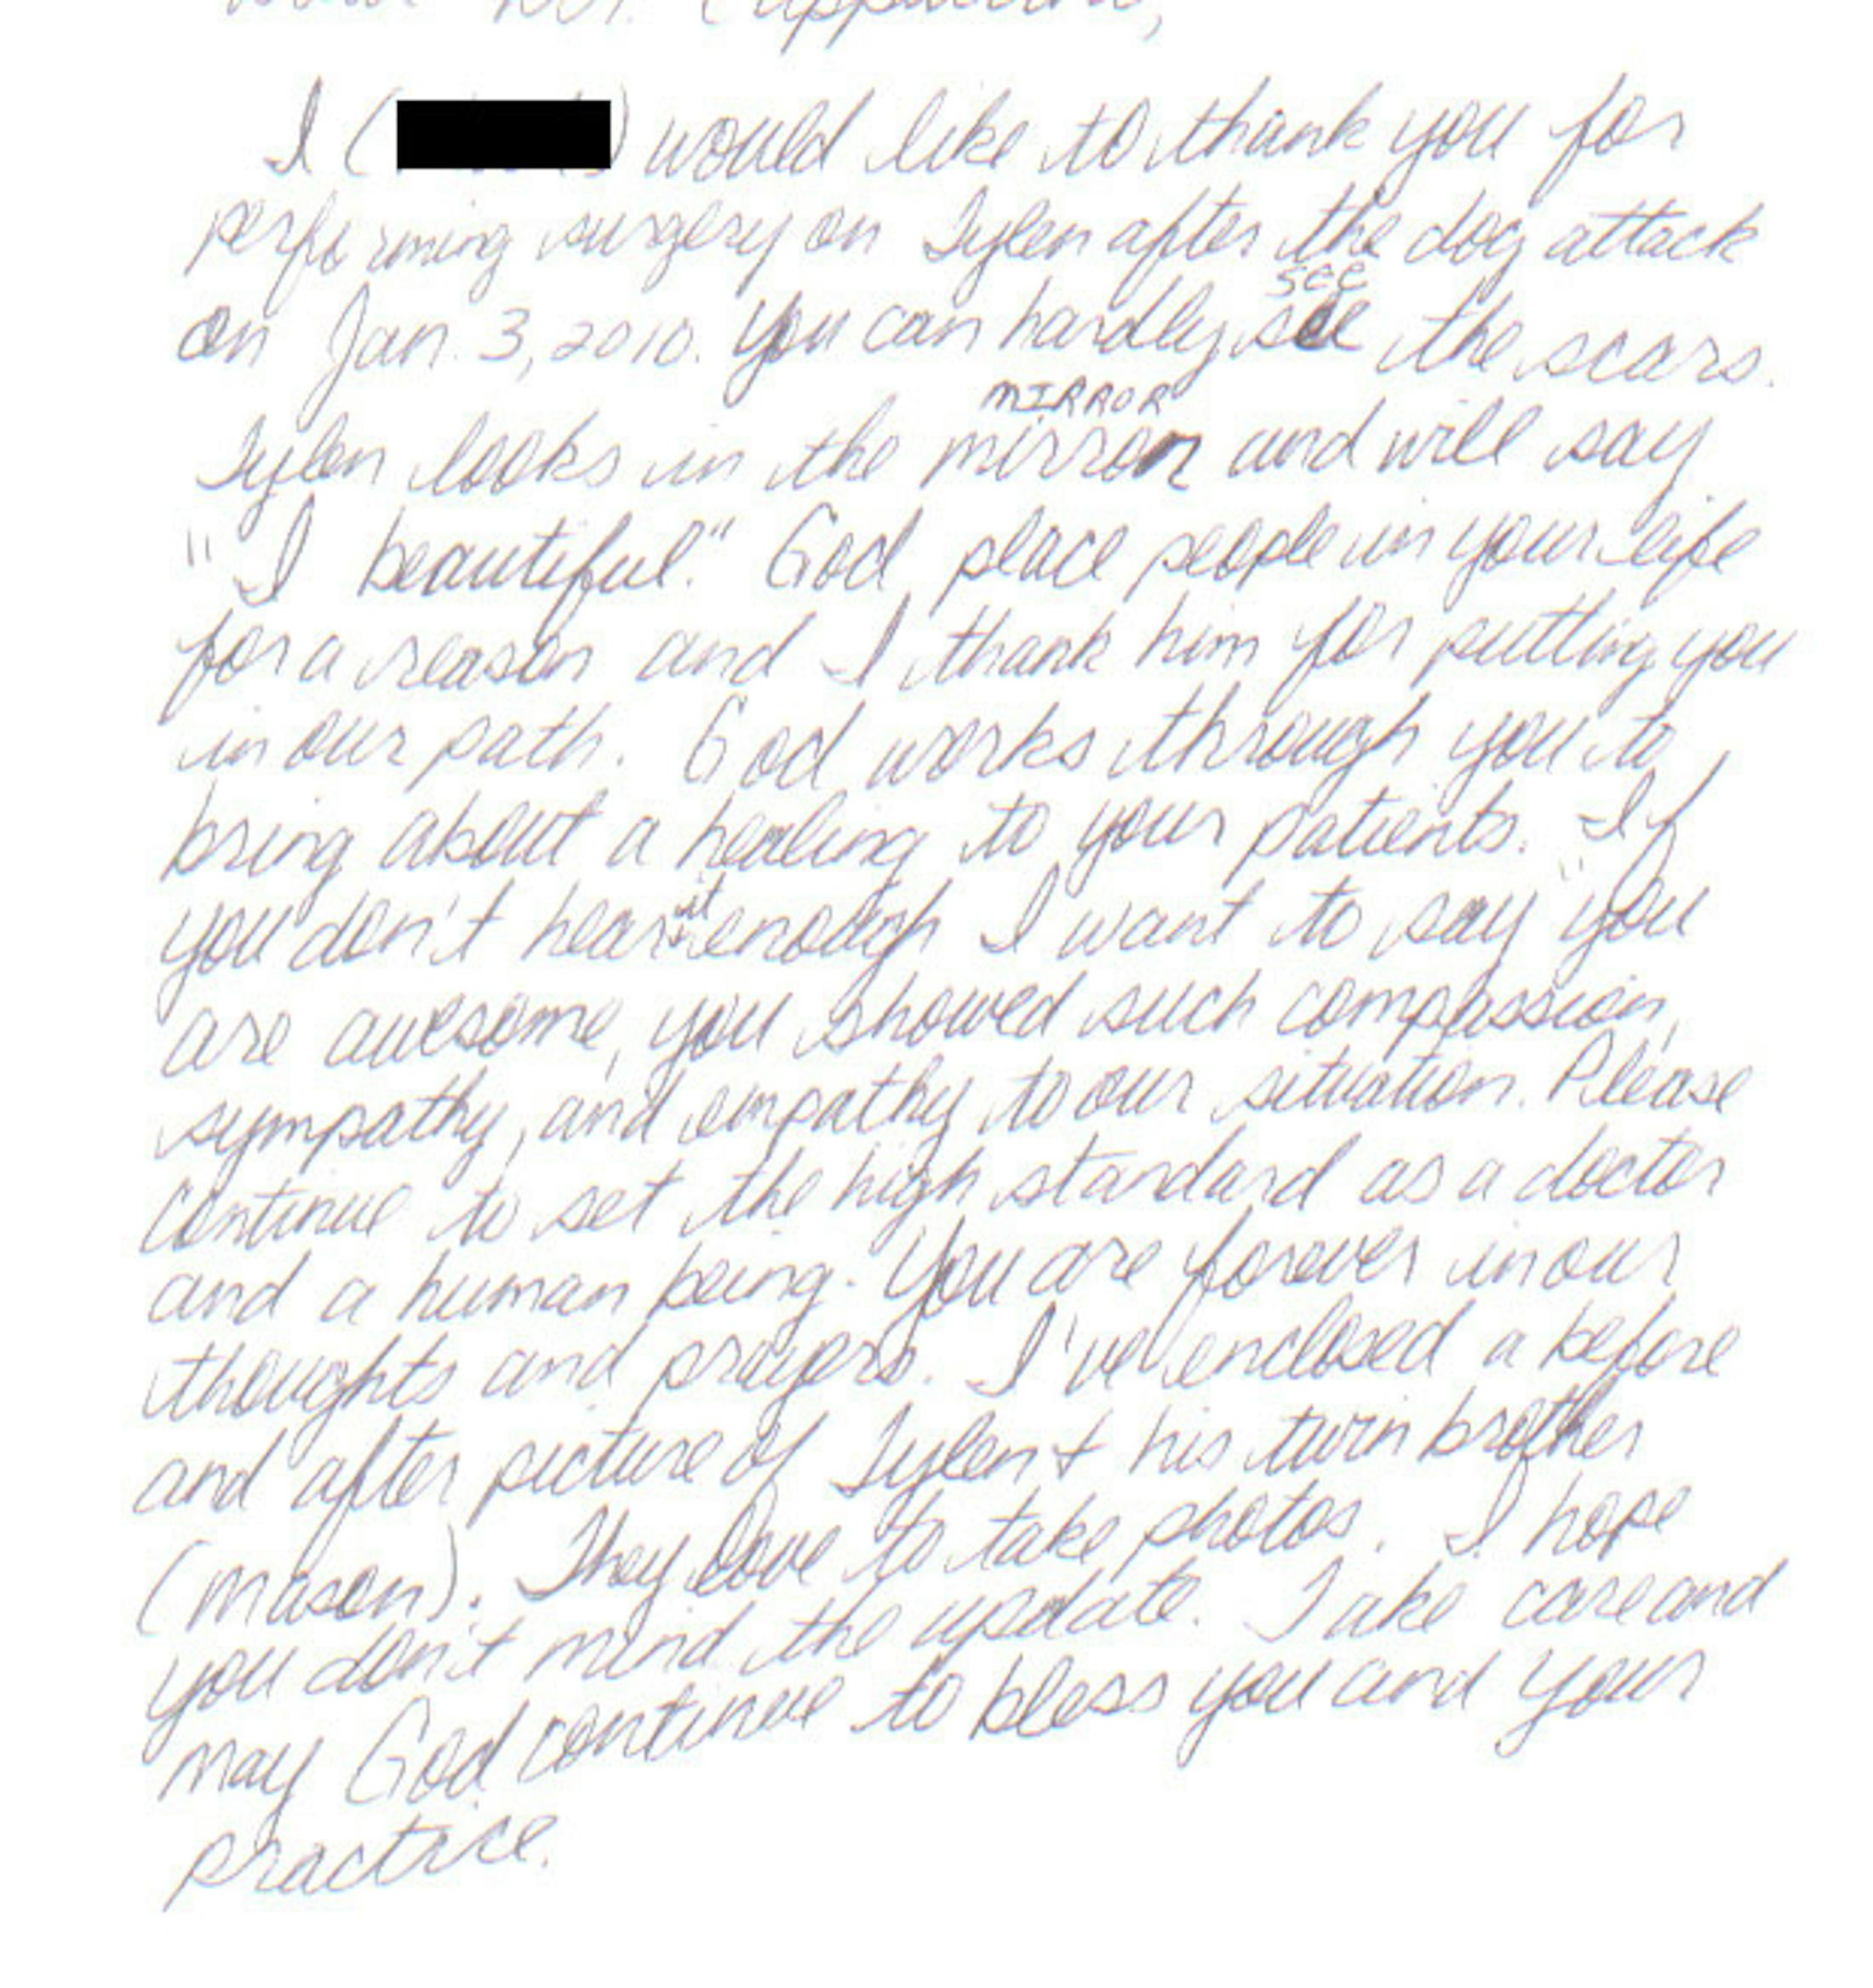 I ( ) would like to thank you for
performing surgery on Tylen after the dog attack
see
on Jan. 3, 2010. You can hardly see the scars.
MIRROR
Tylen looks in the mirror and will say
"I beautiful." God place people in your life
for a reason and I thank him for putting you
in our path. God works through you to
bring about a healing to your patients. If
you don't hear it enough I want to say "you
are awesome, you showed such compassion,
sympathy, and empathy to our situation. Please
continue to set the high standard as a doctor
and a human being. You are forever in our
thoughts and prayers. I've enclosed a before
and after picture of Tylen & his twin brother
(Mason). They love to take photos. I hope
you don't mind the update. Take care and
may God continue to bless you and your
practice.